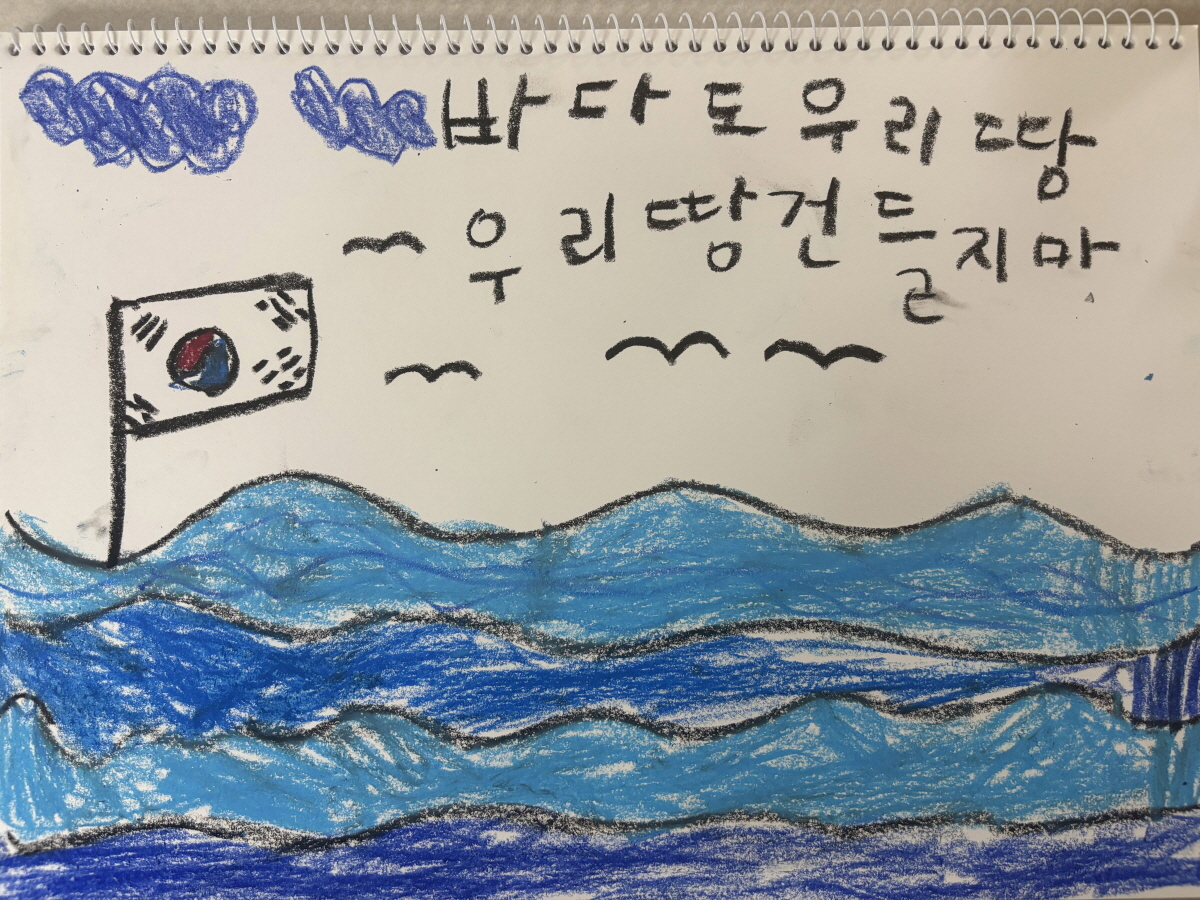 바다도 우리땅
우리땅건들지마